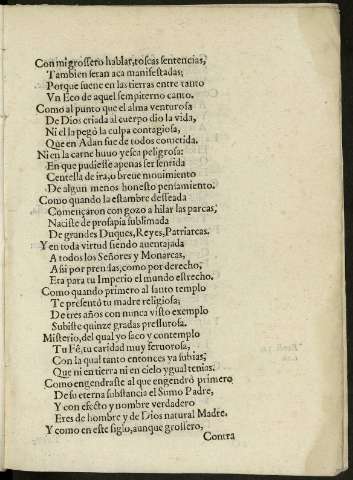 Con mi grossero hablar, toscas sentencias,
Tambien seran aca manifestadas;
Porque suene en las tierras entre tanto
Vn Eco de aquel sempiterno canto.
Como al punto que el alma venturosa
De Dios criada al cuerpo dio la vida,
Ni ella pegò la culpa contagiosa,
Que en Adan fue de todos cometida.
Ni en la carne huuo yesca peligrosa:
En que pudiesse apenas ser sentida
Centella de ira, o breue mouimiento
De algun menos honesto pensamiento.
Como quando la estambre desseada
Començaron con gozo a hilar las parcas;
Naciste de prosapia sublimada
De grandes Duques, Reyes, Patriarcas.
Y en toda virtud siendo auentajada
A todos los Señores y Monarcas,
Assi por prendas, como por derecho;
Era para tu Imperio el mundo estrecho.
Como quando primero al santo templo
Te presentò tu madre religiosa;
De tres años con nunca visto exemplo
Subiste quinze gradas pressurosa.
Misterio, del qual yo saco y contemplo
Tu Fè, tu caridad muy feruorosa,
Con la qual tanto entonces ya subias;
Que ni en tierra ni en cielo ygual tenias.
Como engendraste al que engendrò primero
De su eterna substancia el Sumo Padre,
Y con efecto y nombre verdadero
Eres de hombre y de Dios natural Madre.
Y como en este siglo, aunque grossero,
Contra